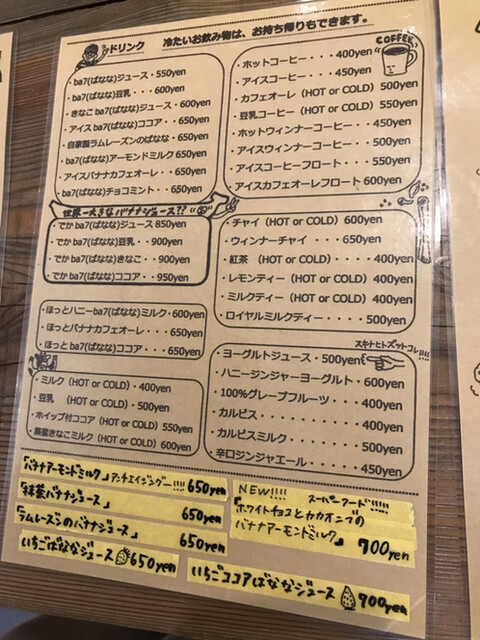 ドリンク 冷たいお飲み物は、お持ち帰りもできます。
・ba7(ばなな)ジュース・550yen
・ba7(ばなな)豆乳・・・600yen
・きなこba7(ばなな)ジュース・600yen
・アイスba7(ばなな)ココア・・650yen
・自家製ラムレーズンのばなな・650yen
・ba7(ばなな)アーモンドミルク 650yen
・アイスバナナカフェオーレ・・650yen
・ba7(ばなな)チョコミント・・650yen
COFFEE
・ホットコーヒー・・・400yen
・アイスコーヒー・・・450yen
・カフェオーレ（HOT or COLD）500yen
・豆乳コーヒー（HOT or COLD）550yen
・ホットウィンナーコーヒー・・450yen
・アイスウィンナーコーヒー・・500yen
・アイスコーヒーフロート・・・550yen
・アイスカフェオーレフロート・600yen
世界一大きなバナナジュース??
・でかba7(ばなな)ジュース 850yen
・でかba7(ばなな)豆乳・・900yen
・でかba7(ばなな)きなこ・・900yen
・でかba7(ばなな)ココア・・950yen
・チャイ（HOT or COLD）600yen
・ウィンナーチャイ・・・・650yen
・紅茶（HOT or COLD）・・・・400yen
・レモンティー（HOT or COLD）・400yen
・ミルクティー（HOT or COLD）・400yen
・ロイヤルミルクティー・・・・500yen
・ほっとハニーba7(ばなな)ミルク・600yen
・ほっとバナナカフェオーレ・・・650yen
・ほっとba7(ばなな)ココア・・・650yen
スキナヒトズットコレ!!!!
・ヨーグルトジュース・500yen
・ハニージンジャーヨーグルト・600yen
・100%グレープフルーツ・・・400yen
・カルピス・・・・・・・・400yen
・カルピスミルク・・・・・500yen
・辛口ジンジャエール・・・・450yen
・ミルク（HOT or COLD）・400yen
・豆乳（HOT or COLD）・500yen
・ホイップ付ココア（HOT or COLD）550yen
・黒蜜きなこミルク（HOT or COLD）600yen
「バナナアーモンドミルク」アンチエイジング!!!! 650yen
「抹茶バナナジュース」 650yen
「ラムレーズンのバナナジュース」 650yen
いちごばななジュース 650yen
NEW!!!! スーパーフード!!!!!
「ホワイトチョコとカカオニブの
バナナアーモンドミルク」 700yen
いちごココアばななジュース 700yen